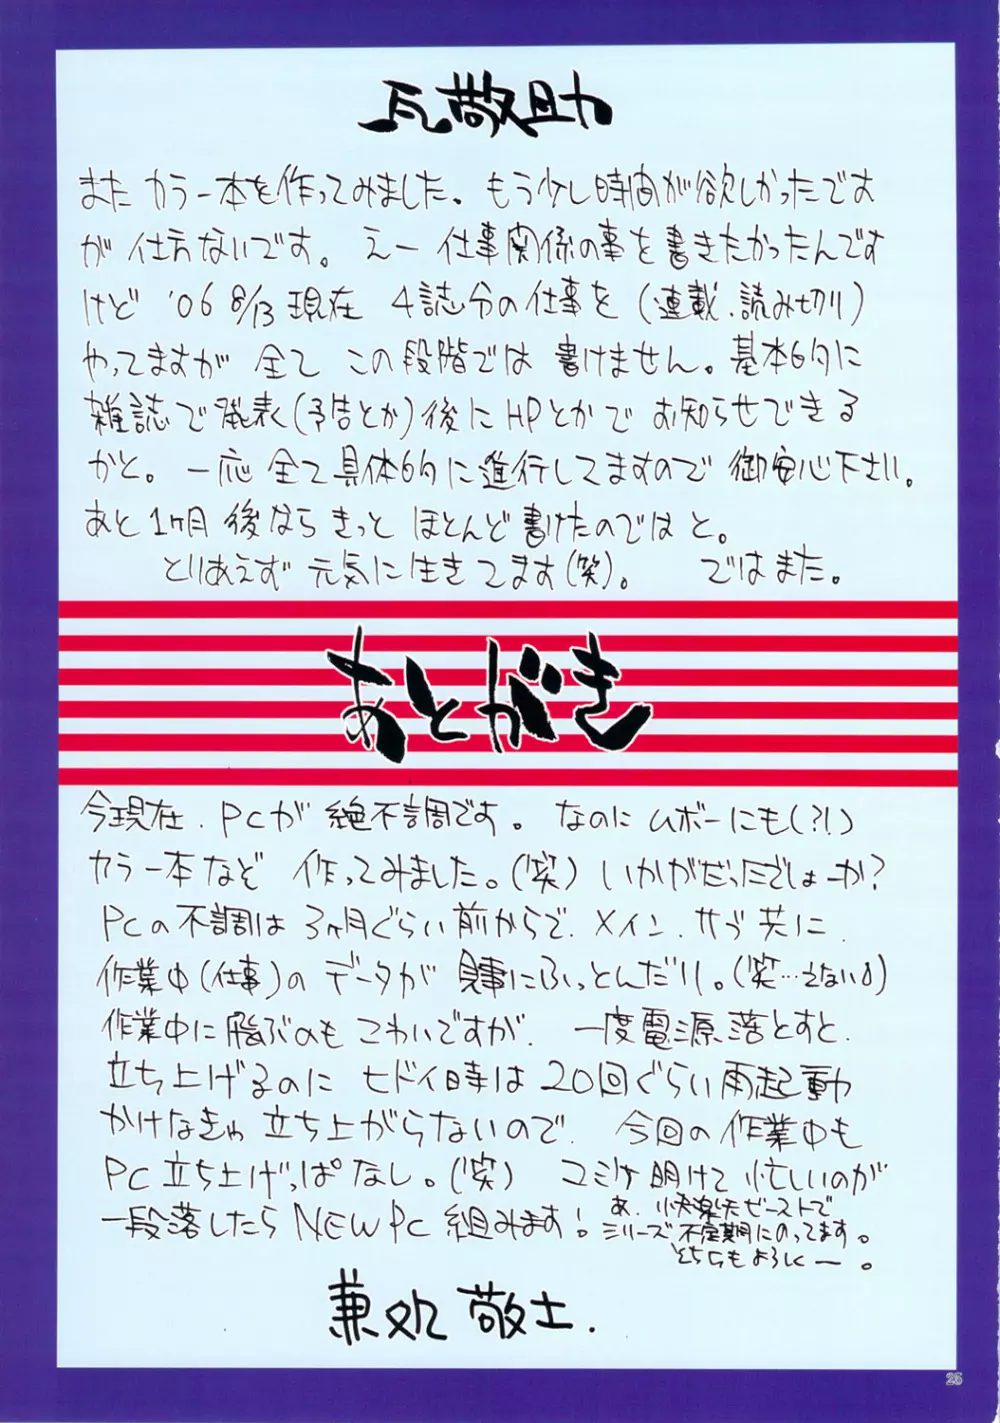 瓦敬助
また カラー本を作ってみました。もう少し時間が欲しかったです
が 仕方ないです。えー 仕事関係の事を書きたかったんです
けど '06 8/13 現在 4誌分の仕事を(連載、読み切り)
やってますが 全て この段階では 書けません。基本的に
雑誌で発表(予告とか)後に HPとかで お知らせできる
かと。一応 全て具体的に進行してますので 御安心下さい。
あと 1ヶ月 後なら きっと ほとんど書けたのでは と。
とりあえず 元気に生きてます(笑)。 ではまた。
あとがき
今現在、PCが 絶不調です。なのに ムボーにも(?!)
カラー本など 作ってみました。(笑) いかがだったでしょーか?
PCの不調は 3ヶ月ぐらい前からで、メイン、サブ共に、
作業中(仕事)の データが 見事にふっとんだり。(笑…えない)
作業中に 飛ぶのも こわいですが、 一度電源落とすと、
立ち上げるのに ヒドイ時は 20回ぐらい再起動
かけなきゃ 立ち上がらないので、 今回の作業中も
PC立ち上げっぱなし。(笑) コミケ明けて 忙しいのが
一段落したら NEW PC 組みます!
あ、快楽天ビーストで
シリーズ 不定期にのってます。
そちらもよろしくー。
兼処敬士.
25